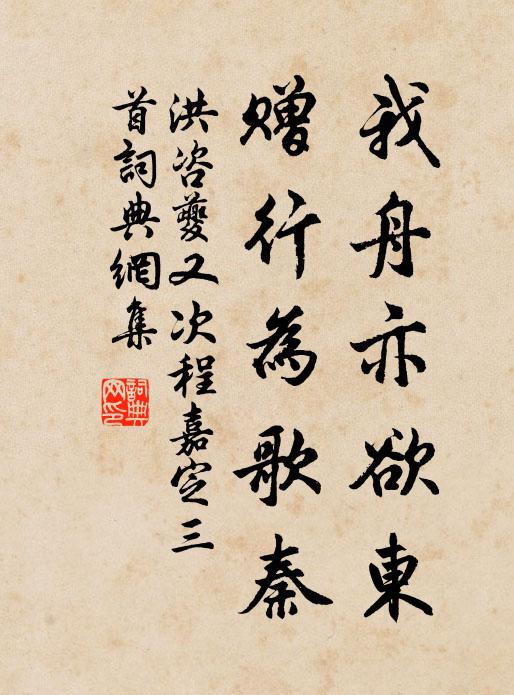 我舟亦欲東
贈行為歌秦
洪咨夔又次程嘉定三
首詞典網集
詞典網印